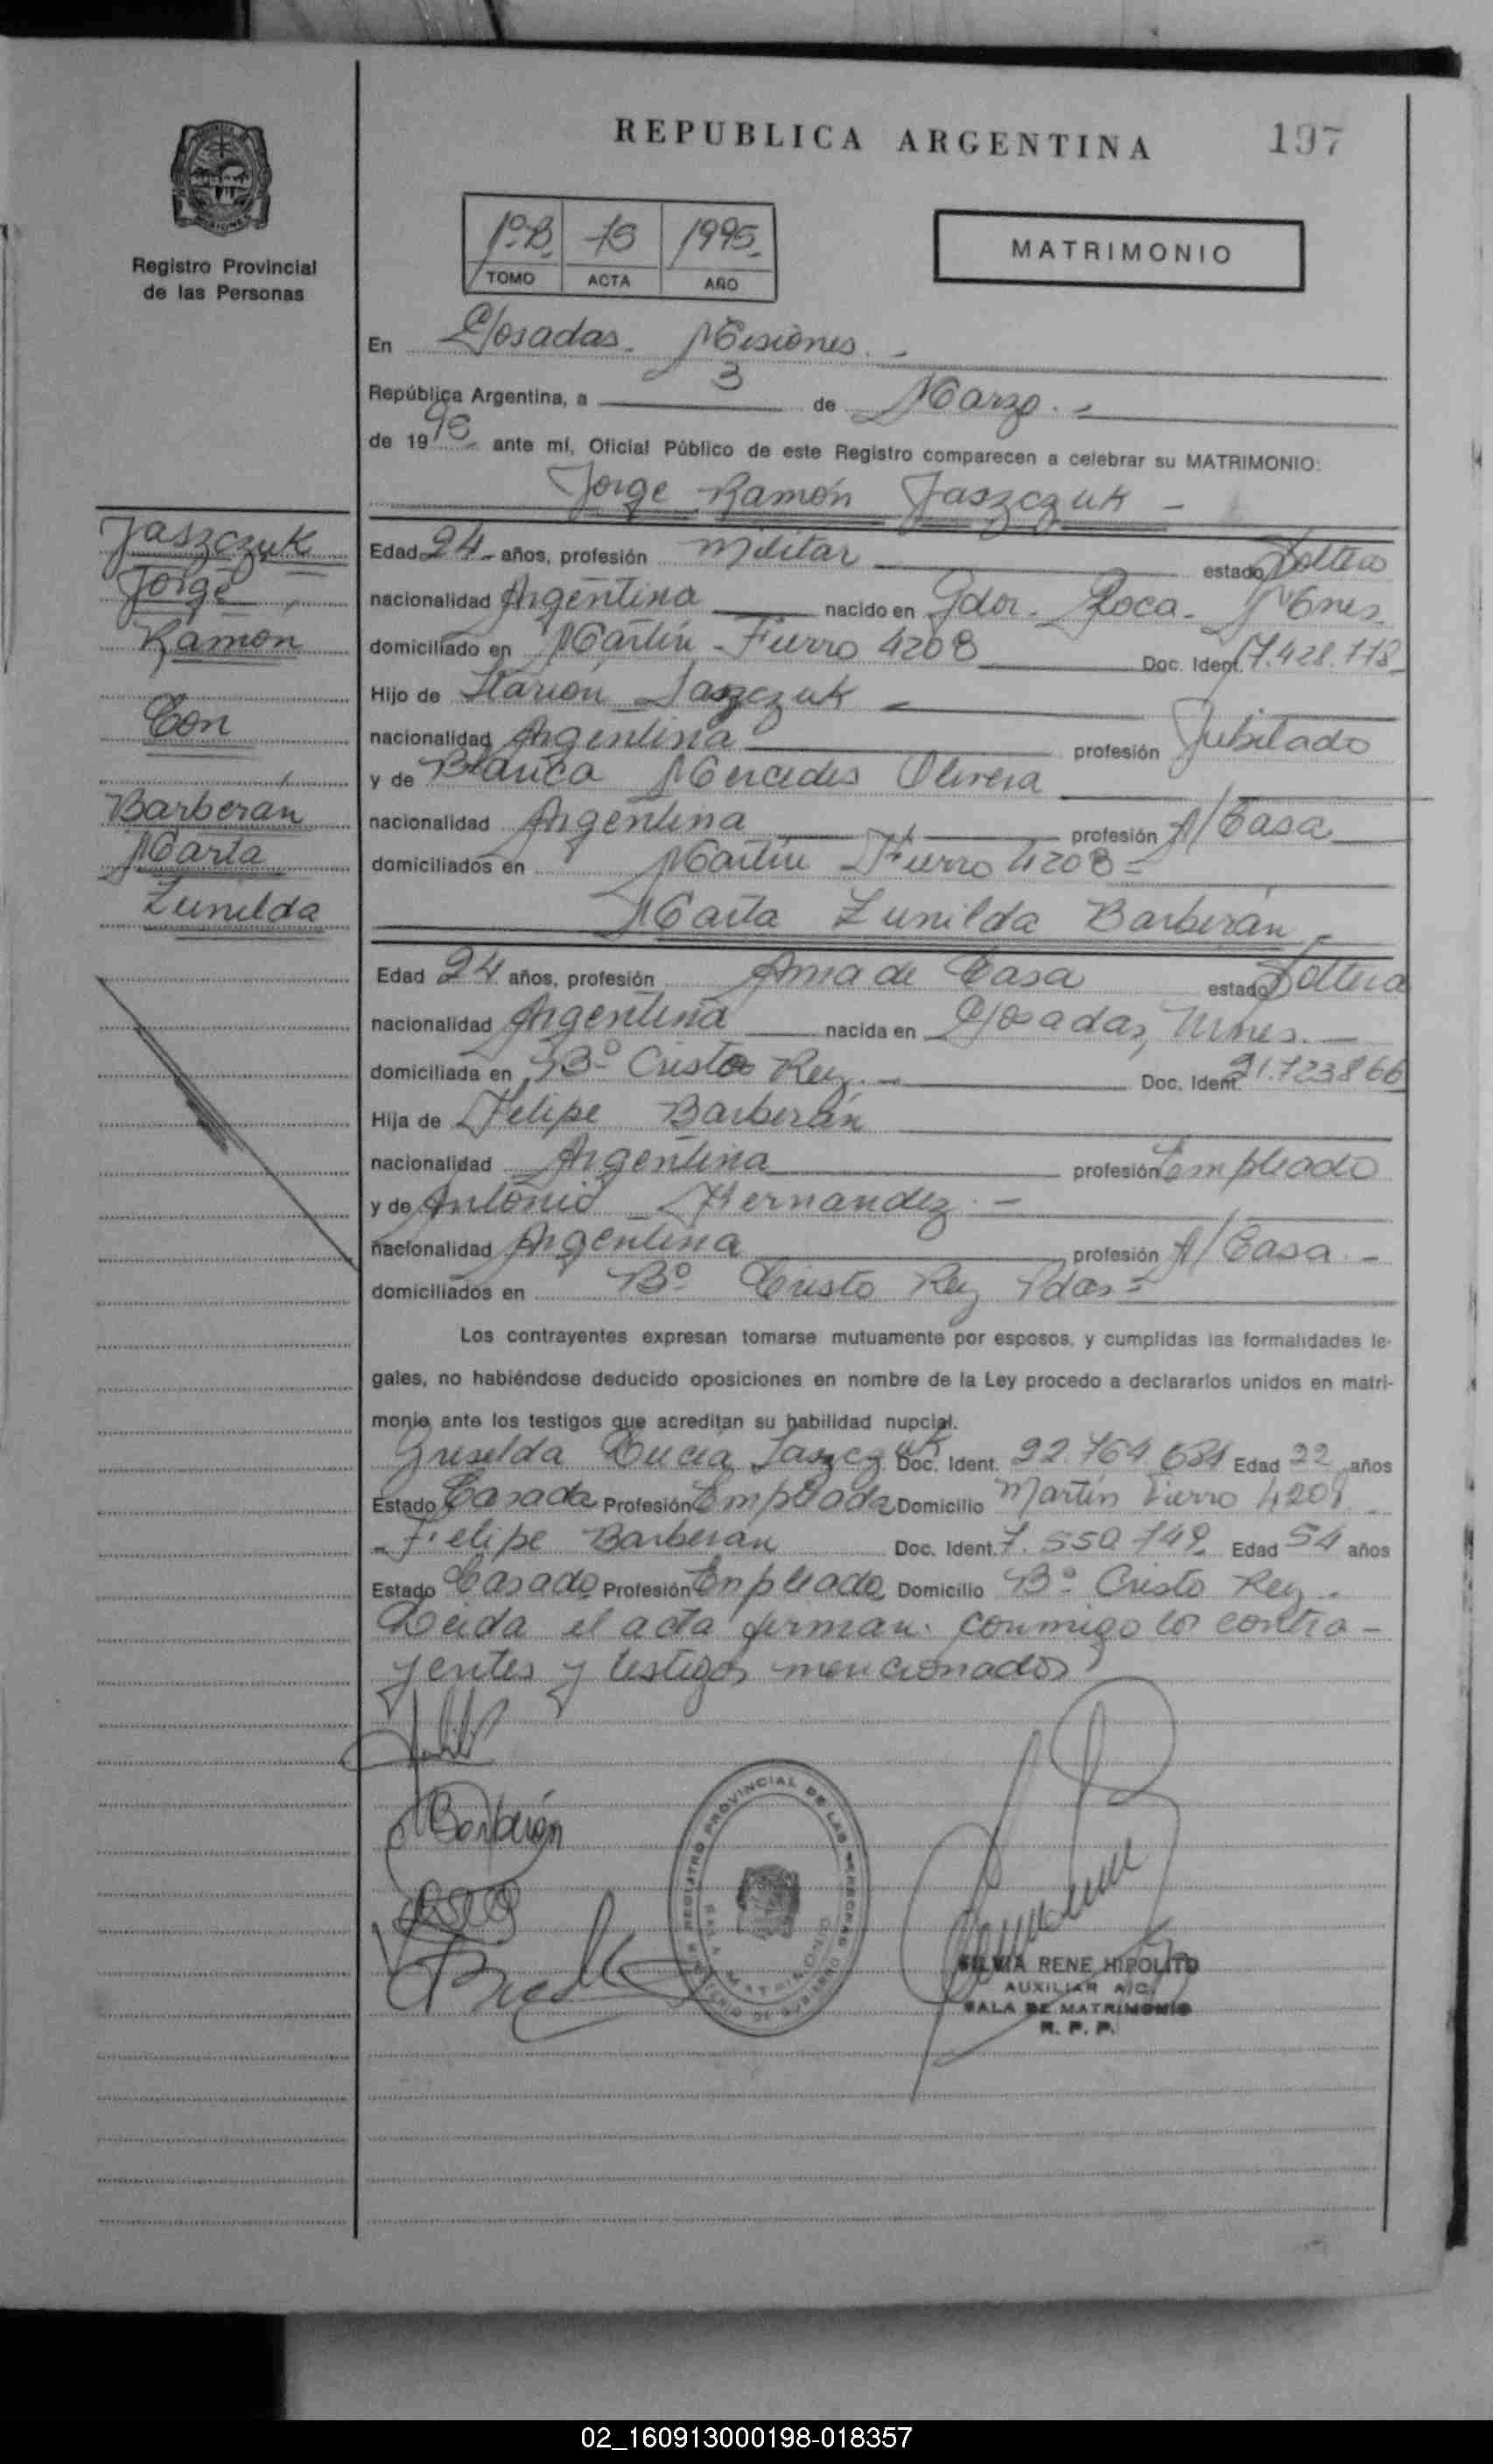 REPUBLICA ARGENTINA 197
Registro Provincial
de las Personas
1º B. 1995
TOMO ACTA AÑO
MATRIMONIO
En Posadas Misiones
República Argentina, a 3 de Marzo
de 1995 ante mí, Oficial Público de este Registro comparecen a celebrar su MATRIMONIO:
Jorge Ramón Jaszczuk
Jaszczuk
Jorge
Ramon
Con
Barberan
Marta
Zunilda
Edad 24 años, profesión militar estado Soltero
nacionalidad Argentina nacido en Gdor. Roca Mnes.
domiciliado en Martín Fierro 4208 Doc. Ident.
Hijo de Ilarión Jaszczuk
nacionalidad Argentina profesión Jubilado
y de Blanca Mercedes Olivera
nacionalidad Argentina profesión A/Casa
domiciliados en Martín Fierro 4208
Marta Zunilda Barberán
Edad 24 años, profesión Ama de Casa estado Soltera
nacionalidad Argentina nacida en Posadas, Mnes.
domiciliada en Bº Cristo Rey. Doc. Ident. 21.723866
Hija de Felipe Barberán
nacionalidad Argentina profesión Empleado
y de Antonia Hernandez
nacionalidad Argentina profesión A/Casa
domiciliados en Bº Cristo Rey Pdas
Los contrayentes expresan tomarse mutuamente por esposos, y cumplidas las formalidades le-
gales, no habiéndose deducido oposiciones en nombre de la Ley procedo a declararlos unidos en matri-
monio ante los testigos que acreditan su habilidad nupcial.
Griselda Lucía Jaszczuk Doc. Ident. 22.764.681 Edad 22 años
Estado Casada Profesión Empleada Domicilio Martín Fierro 4208
Felipe Barberan Doc. Ident. 7.550.749 Edad 54 años
Estado Casado Profesión Empleado Domicilio Bº Cristo Rey.
Leida el acta firman conmigo los contra-
yentes y testigos mencionados
Barberán
REGISTRO PROVINCIAL DE LAS PERSONAS
SALA MATRIMONIO
MINISTERIO DE GOBIERNO
SILVIA RENE HIPOLITO
AUXILIAR A/C.
SALA DE MATRIMONIO
R. P. P.
02_160913000198-018357